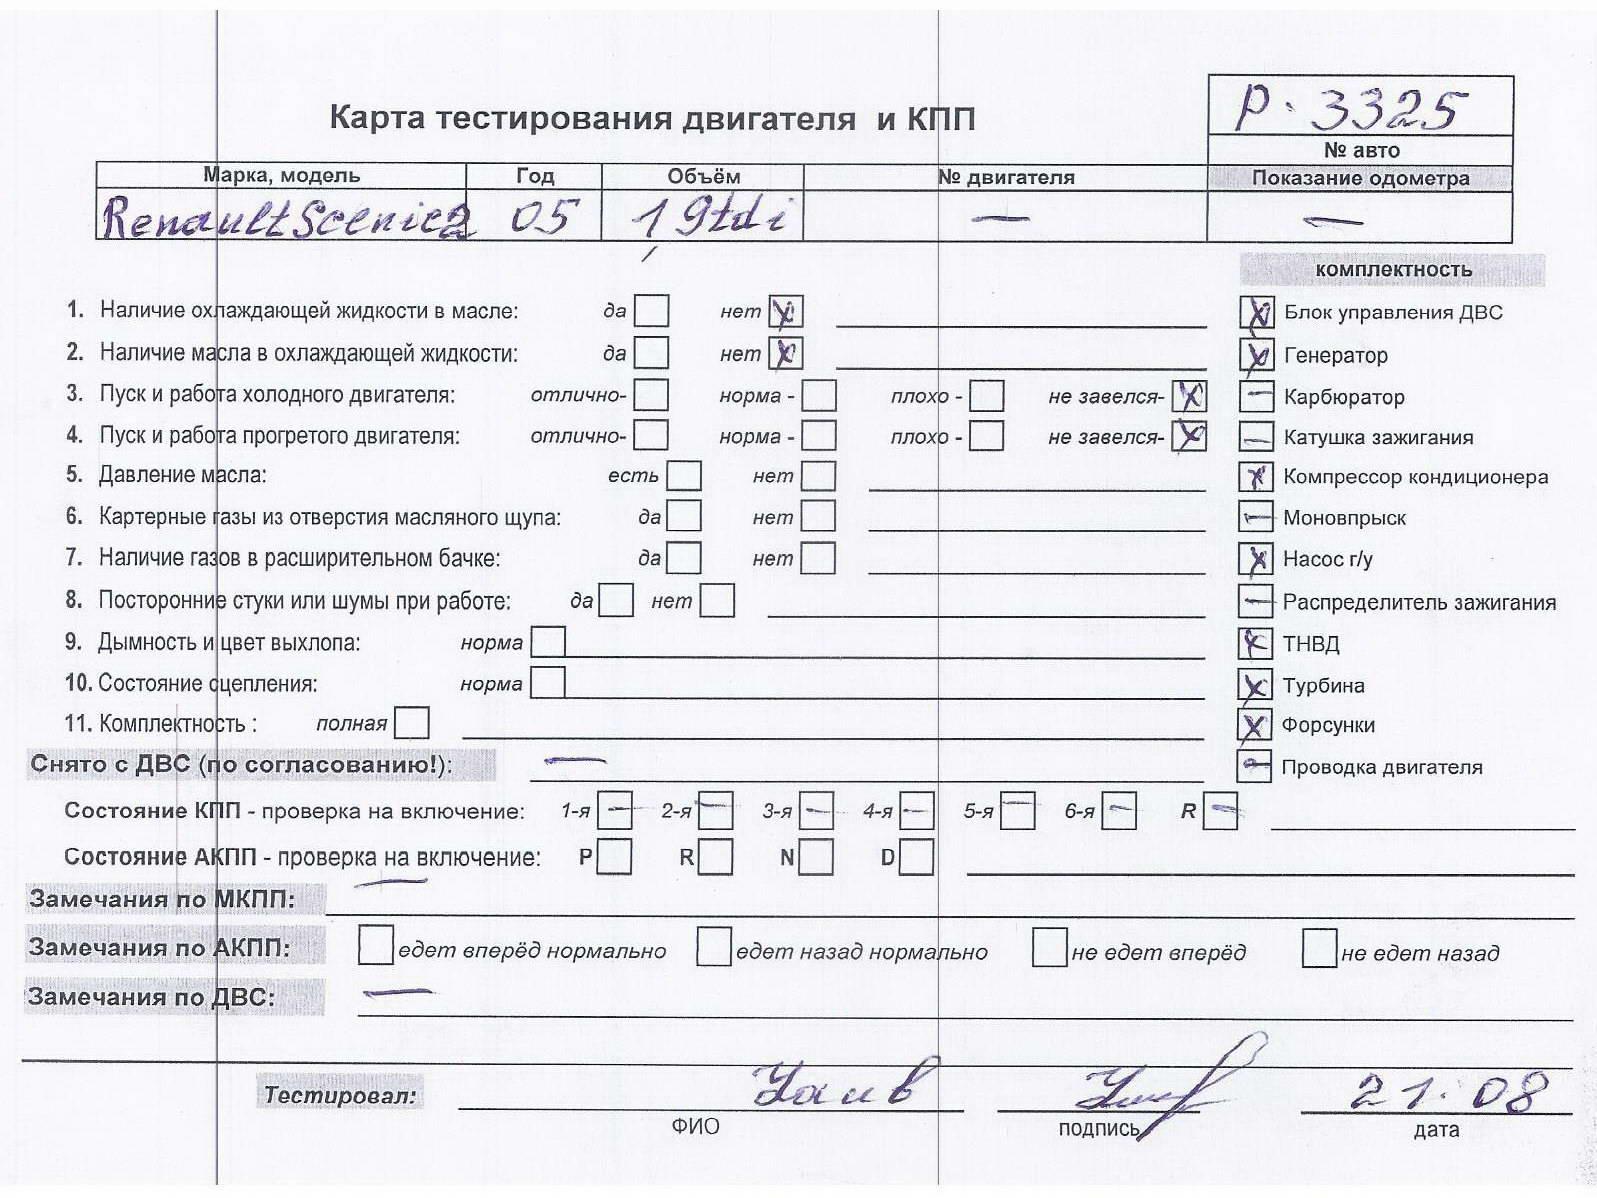 Р. 3325
Карта тестирования двигателя и КПП
№ авто
Марка, модель Год Объём № двигателя Показание одометра
Renault Scenic 2 05 1,9tdi — —
комплектность
1. Наличие охлаждающей жидкости в масле: да нет Блок управления ДВС
2. Наличие масла в охлаждающей жидкости: да нет Генератор
3. Пуск и работа холодного двигателя: отлично- норма - плохо - не завелся- Карбюратор
4. Пуск и работа прогретого двигателя: отлично- норма - плохо - не завелся- Катушка зажигания
5. Давление масла: есть нет Компрессор кондиционера
6. Картерные газы из отверстия масляного щупа: да нет Моновпрыск
7. Наличие газов в расширительном бачке: да нет Насос г/у
8. Посторонние стуки или шумы при работе: да нет Распределитель зажигания
9. Дымность и цвет выхлопа: норма ТНВД
10. Состояние сцепления: норма Турбина
11. Комплектность : полная Форсунки
Снято с ДВС (по согласованию!): — Проводка двигателя
Состояние КПП - проверка на включение: 1-я 2-я 3-я 4-я 5-я 6-я R
Состояние АКПП - проверка на включение: P R N D
Замечания по МКПП: —
Замечания по АКПП: едет вперёд нормально едет назад нормально не едет вперёд не едет назад
Замечания по ДВС: —
Тестировал: 21.08
ФИО подпись дата